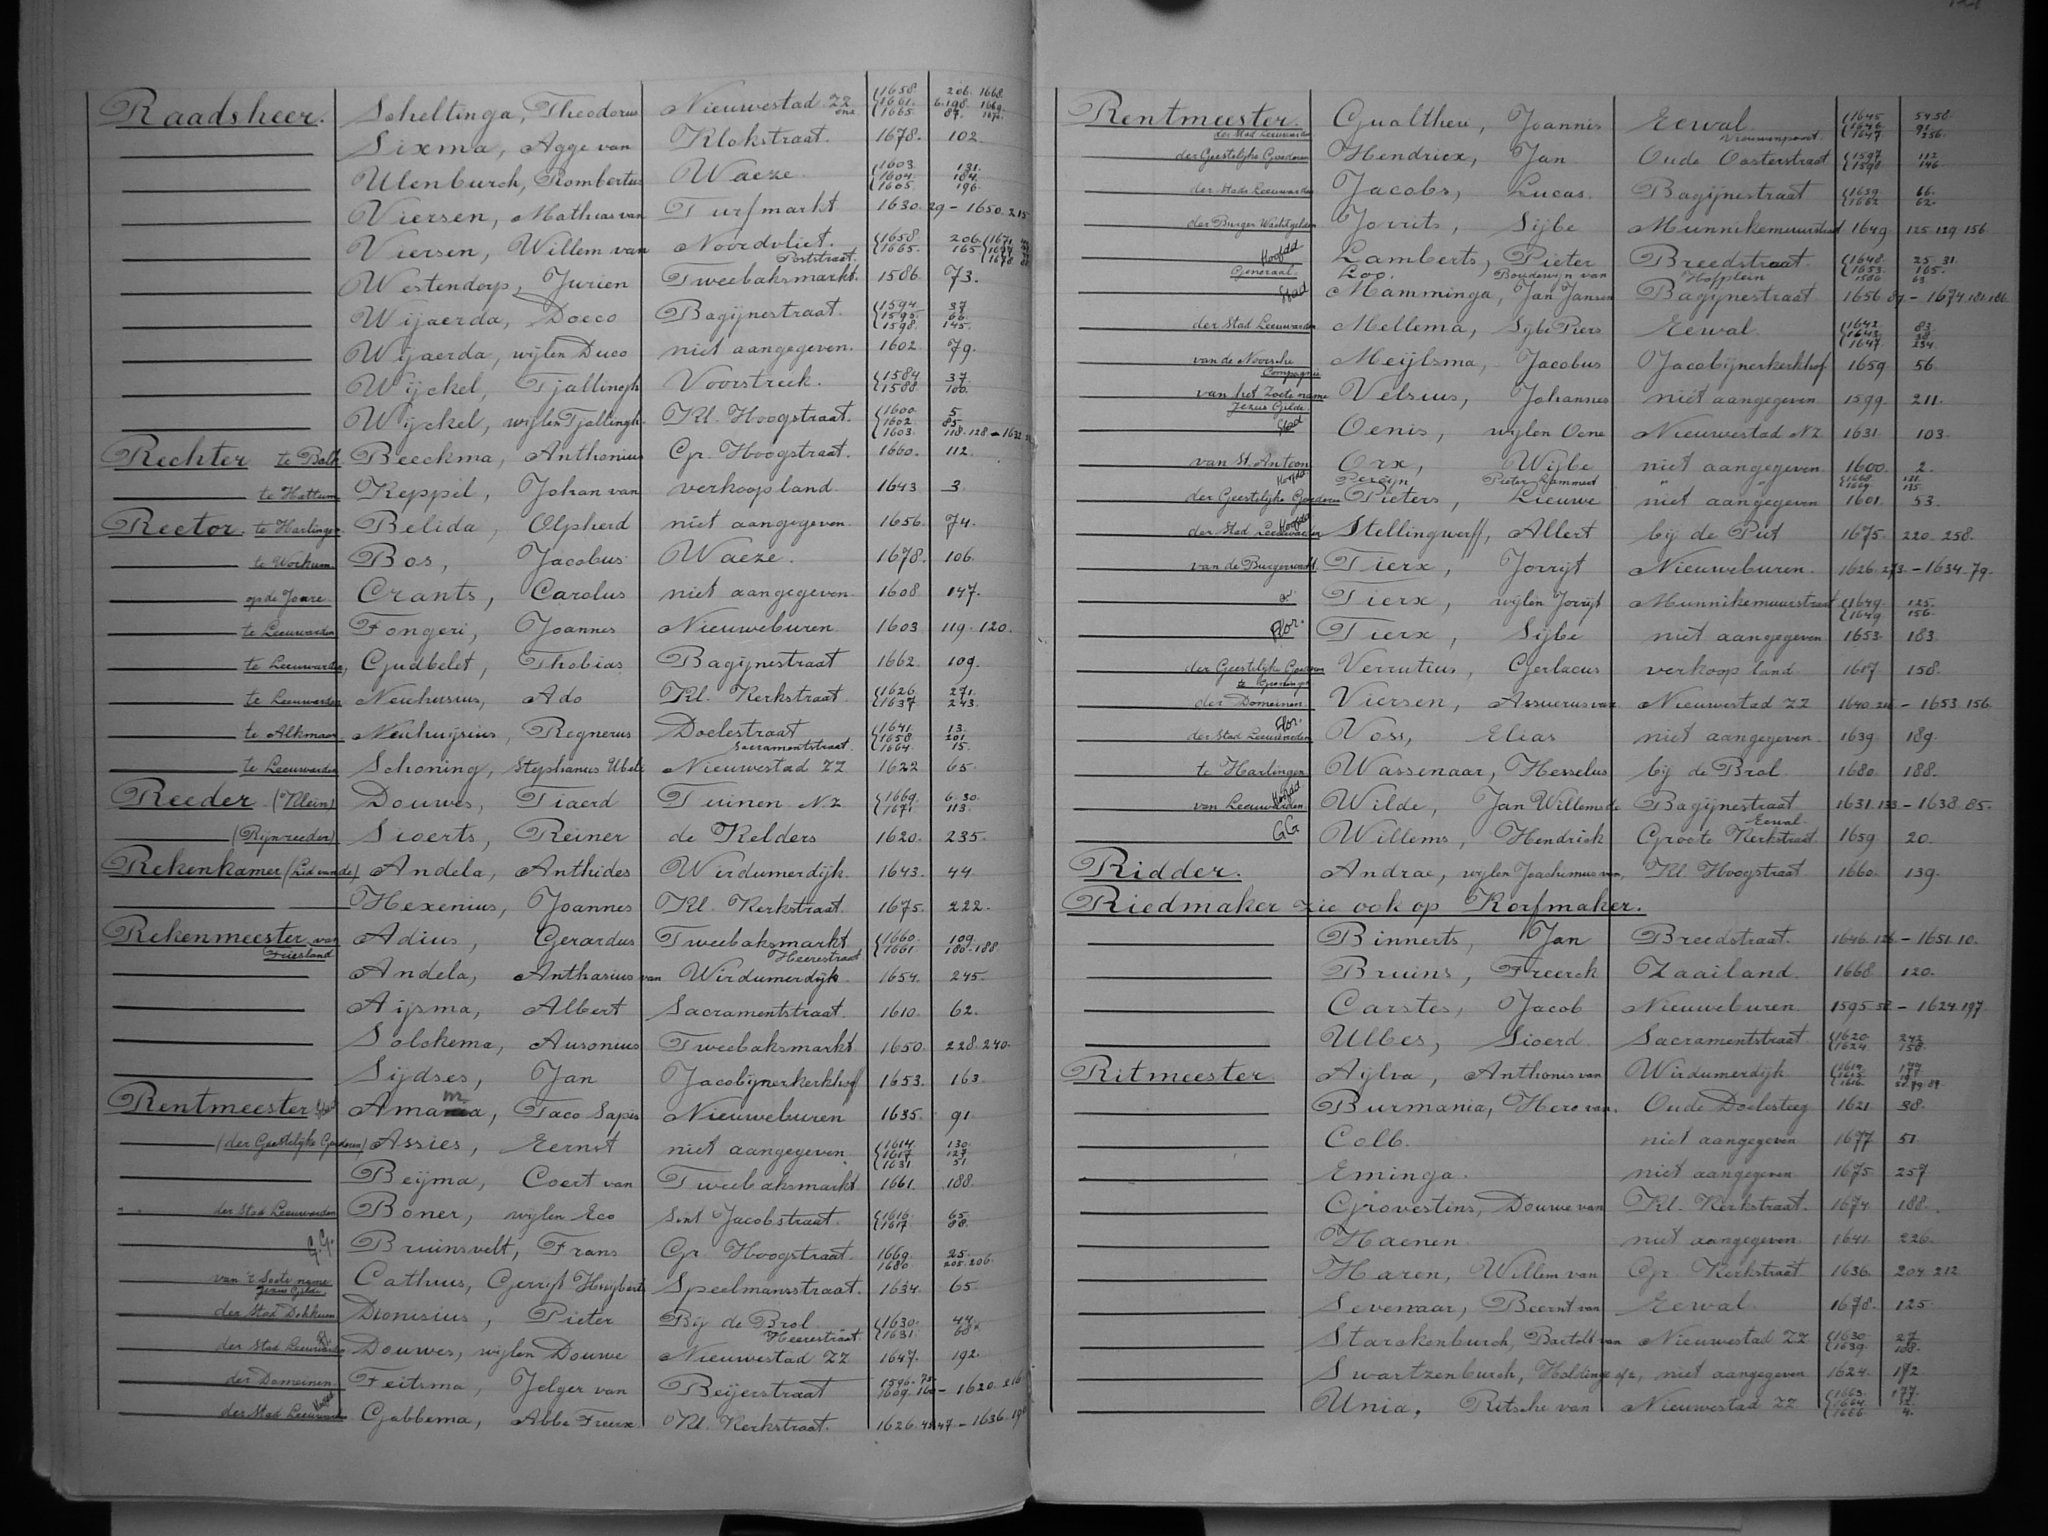 Raadsheer. Scheltinga, Theodorus Nieuwestad ZZ {1658. 1661. 1665. 206. 1668
Sixma, Agge van Klokstraat. 1678. 102.
Ulenburch, Rombertus Waeze. {1603. 1604. 1605. 131. 184. 196.
Viersen, Mathias van Turfmarkt 1630. 29 - 1650. 215
Viersen, Willem van Noordvliet. Poststraat. {1658. 1665. 206. 165
Westendorp, Jurien Tweebaksmarkt. 1586. 73.
Wijaerda, Doeco Bagijnestraat. {1594. 1595. 1598. 37. 66. 145.
Wijaerda, wijlen Duco niet aangegeven. 1602. 79.
Wijckel, Tjallingh Voorstreek. {1584. 1588. 37. 106.
Wijckel, wijlen Tjallingh. Kl. Hoogstraat. {1600. 1602. 1603. 5. 85. 118. 128 - 1632
Rechter te Balk. Beeckma, Anthonius Gr. Hoogstraat. 1660. 112.
te Hattum Keppil, Johan van verkoop land 1643 3
Rector. te Harlingen Belida, Olpherd niet aangegeven. 1656. 74.
te Workum. Bos, Jacobus Waeze. 1678. 106.
op de Joure. Crants, Carolus niet aangegeven. 1608. 147.
te Leeuwarden Fongeri, Joannes Nieuweburen 1603 119. 120.
te Leeuwarden, Gudbelet, Thobias Bagijnestraat 1662. 109.
te Leeuwarden Neuhusius, Ado Kl. Kerkstraat. {1626. 1637 271. 243.
te Alkmaar Neuhuijsius, Regnerus Doelestraat Sacramentstraat. {1641. 1658. 1664. 13. 201. 15.
te Leeuwarden Schoning, Stephanus Ubels Nieuwestad ZZ 1622 65.
Reeder (Klein) Douwes, Tiaerd Tuinen NZ {1669. 1671. 6. 30. 113.
(Rijnreeder) Sioerts, Reiner de Kelders 1620. 235.
Rekenkamer (Lid van de) Andela, Anthides Wirdumerdijk. 1643. 44
Hexenius, Joannes Kl. Kerkstraat. 1675. 222.
Rekenmeester van Friesland Adius, Gerardus Tweebaksmarkt, Heerestraat {1660. 1661. 109. 180. 188.
Andela, Anthasius van Wirdumerdijk. 1654. 245.
Aijsma, Albert Sacramentstraat. 1610. 62.
Solckema, Ausonius Tweebaksmarkt 1650. 228. 240.
Sijdses, Jan Jacobijnerkerkhof 1653. 163.
Rentmeester Stad Amama, Taco Sapes Nieuweburen 1635. 91.
(der Geestelijke Goederen) Assies, Eernst niet aangegeven. {1614. 1617 1631. 130. 127. 51
Beijma, Coert van Tweebaksmarkt 1661. 188.
der Stad Leeuwarden Boner, wijlen Eco Sint Jacobstraat. {1616. 1617 65. 88.
G.G. Bruinsvelt, Frans Gr. Hoogstraat. 1669. 1680. 25. 205. 206.
van 't Soete name Jezus Gilde. Cathuus, Gerrijt Huijberts Speelmansstraat. 1634. 65.
der Stad Dokkum Dionisius, Pieter Bij de Brol Heerestraat {1630. 1631. 44. 60.
der Stad Leeuwarden Douwes, wijlen Douwe Nieuwestad ZZ 1647. 192.
der Domeinen. Feitsma, Jelger van Beijerstraat 1596. 1609. - 1620. 216
der Stad Leeuwarden Gabbema, Abbe Freerx. Kl. Kerkstraat. 1626. 47 - 1636.
Rentmeester. der Stad Leeuwarden Gualtheri, Joannis Eewal. Vrouwenpoort. {1645 1646. 1647 54 58. 91. 256.
der Geestelijke Goederen Hendricx, Jan Oude Oosterstraat {1597. 1598. 112 146.
der Stads Leeuwarden Jacobs, Lucas. Bagijnestraat {1659. 1662 66. 62.
der Burger Wachtgelden Jorrits, Sijbe Munnikemuurstraat 1649. 125. 139. 156.
Hoofd Lamberts, Pieter Breedstraat. {1648. 1653. 25. 31. 165.
Generaal. Loo. Boudewijn van Hofplein 1586 63
Stad Mamminga, Jan Jansen Bagijnestraat 1656. - 1674. 181. 186.
der Stad Leeuwarden Mellema, Sijbe Piers Eewal. {1642. 1643. 1647. 83. 38. 234.
van de Noorsche Compagnie Meijlsma, Jacobus Jacobijnerkerkhof 1659. 56.
van het Zoete name Jezus Gilde. Velsius, Johannes niet aangegeven 1599. 211.
Stad Oenis, wijlen Oene Nieuwestad NZ. 1631. 103.
van St. Antoon Orx, Wijbe niet aangegeven 1600. 2.
Hoofd Percijn, Pieter Lammert " " {1668. 1669. 121. 135.
der Geestelijke Goederen Pieters, Lieuwe niet aangegeven 1601. 53.
der Stad Leeuwarden Stellingwerff, Allert bij de Put 1675. 220. 258.
van de Burgerwacht Tierx, Jorrijt Nieuweburen. 1626. 273. - 1634. 79.
Tierx, wijlen Jorrijt Munnikemuurstraat {1649. 1649 125. 156.
Flor. Tierx, Sijbe niet aangegeven 1653. 183.
der Geestelijke Goederen te Groningen Verrutius, Gerlacus verkoop land. 1617 158.
der Domeinen. Viersen, Assuerus van Nieuwestad ZZ 1640. - 1653. 156.
Flor. der Stad Leeuwarden Voss, Elias niet aangegeven. 1639. 189.
te Harlingen Wassenaar, Hesselus bij de Brol 1680. 188.
Hoofd van Leeuwarden Wilde, Jan Willems de Bagijnestraat 1631. 133 - 1638. 85.
GG Willems, Hendrick Eewal. Groote Kerkstraat. 1659. 20.
Ridder. Andrae, wijlen Joachimus van, Kl. Hoogstraat. 1660. 139.
Riedmaker zie ook op Korfmaker.
Binnerts, Jan Breedstraat. 1646. - 1651. 10.
Bruins, Freerck Zaailand. 1668 120.
Carstes, Jacob Nieuweburen 1595. 52 - 1624. 197
Ulbes, Sioerd Sacramentstraat {1620. 1624. 242. 158.
Ritmeester. Aijlva, Anthonis van Wirdumerdijk
Burmania, Hero van. Oude Doelesteeg 1621 38.
Colb. niet aangegeven 1677 51.
Eminga. niet aangegeven. 1675. 257
Grovestins, Douwe van Kl. Kerkstraat. 1674. 188.
Haenen. niet aangegeven. 1641. 226.
Haren, Willem van Gr. Kerkstraat 1636. 204. 212
Sevenaar, Beernt van Eewal. 1678. 125.
Starckenburch, Bartolt van Nieuwestad ZZ {1630. 1639. 27. 108.
Swartzenburch, Holdinge niet aangegeven 1624. 142
Unia, Ritsche van Nieuwestad ZZ {1663. 1664. 1666 177. 4.